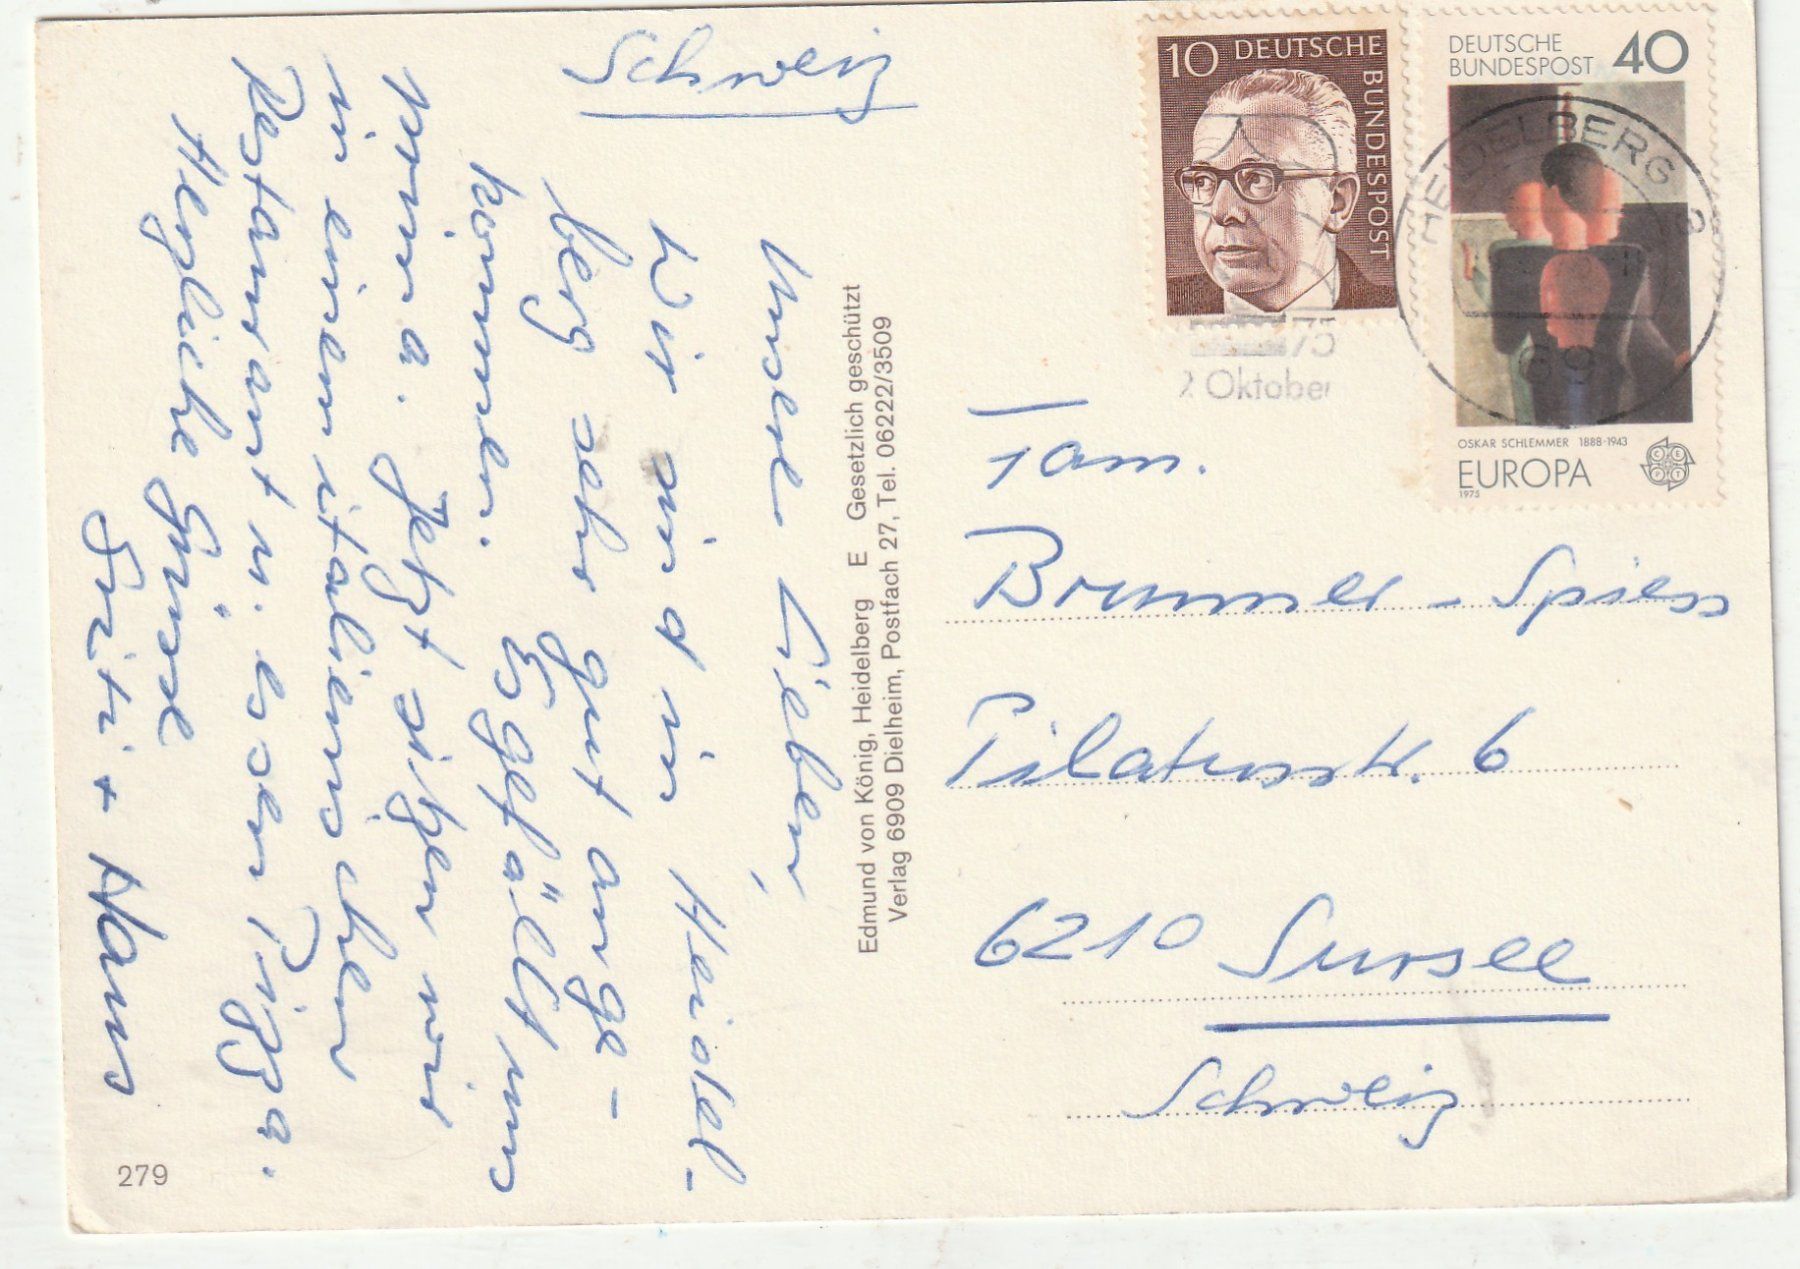 Schweiz
Unsere Lieben,
Wir sind in Heidel-
berg sehr gut ange-
kommen. Es gefällt uns
prima. Jetzt sitzen wir
in einem italienischen
Restaurant u. essen Pizza.
Herzliche Grüsse
Friti + Hans
279
Edmund von König, Heidelberg E Gesetzlich geschützt
Verlag 6909 Dielheim, Postfach 27, Tel. 06222/3509
10 DEUTSCHE
BUNDESPOST
DEUTSCHE
BUNDESPOST 40
HEIDELBERG
69
OSKAR SCHLEMMER 1888-1943
EUROPA
CEPT
1975
75
Oktober
Fam.
Brunner - Spiess
Pilatusstr. 6
6210 Sursee
Schweiz